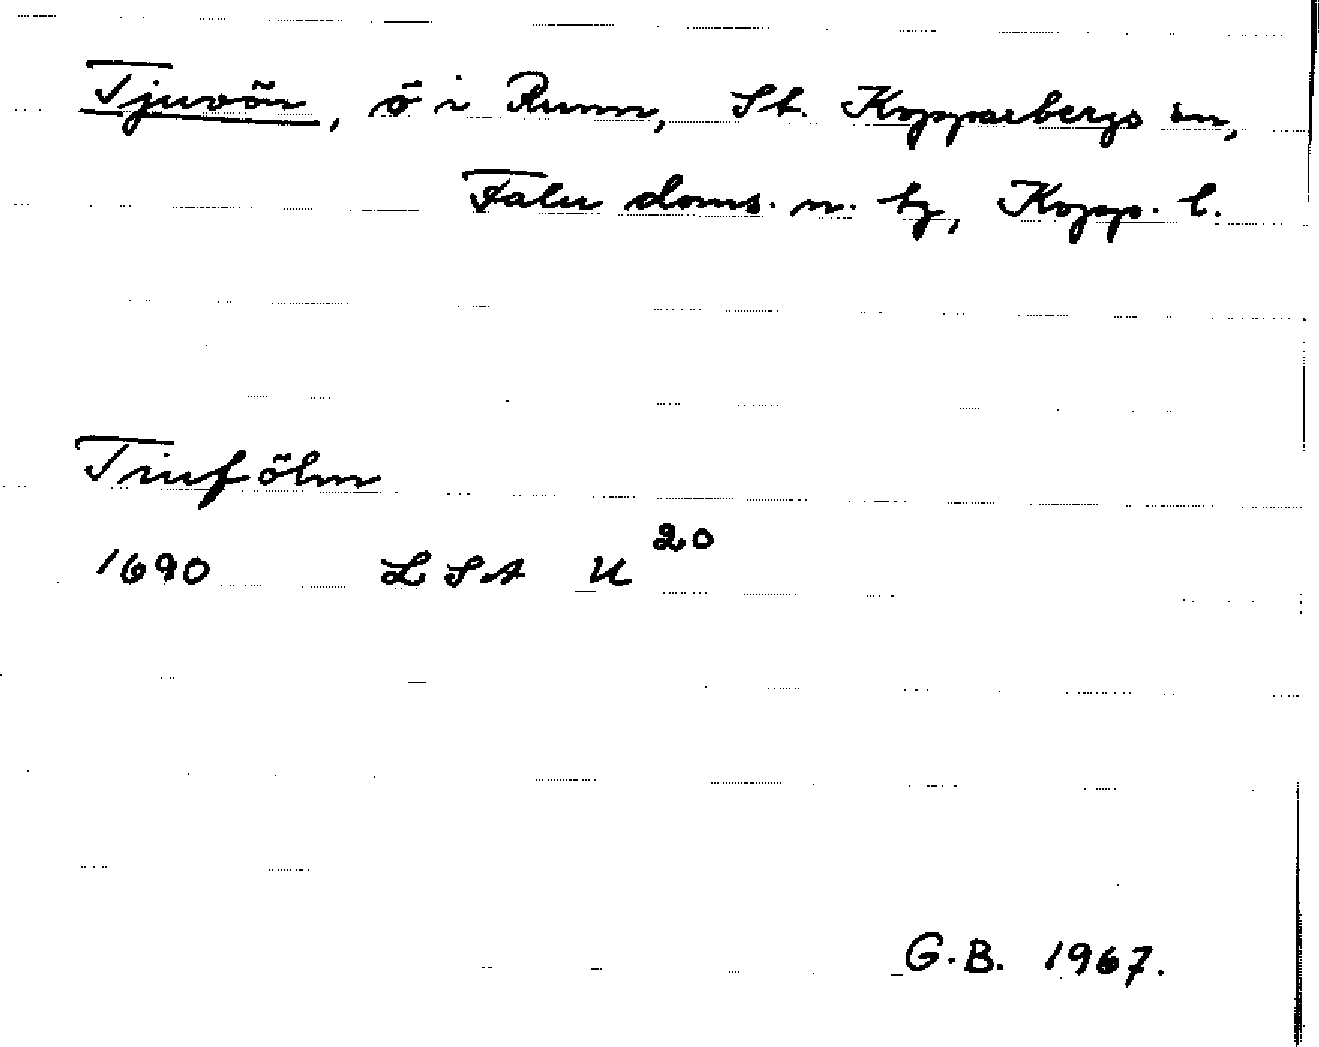 Tjuvön, ö i Runn, St. Kopparbergs sn,
Falu doms. n. tg, Kopp. l.
Tiufölm
1690 LSA U 20
G.B. 1967.